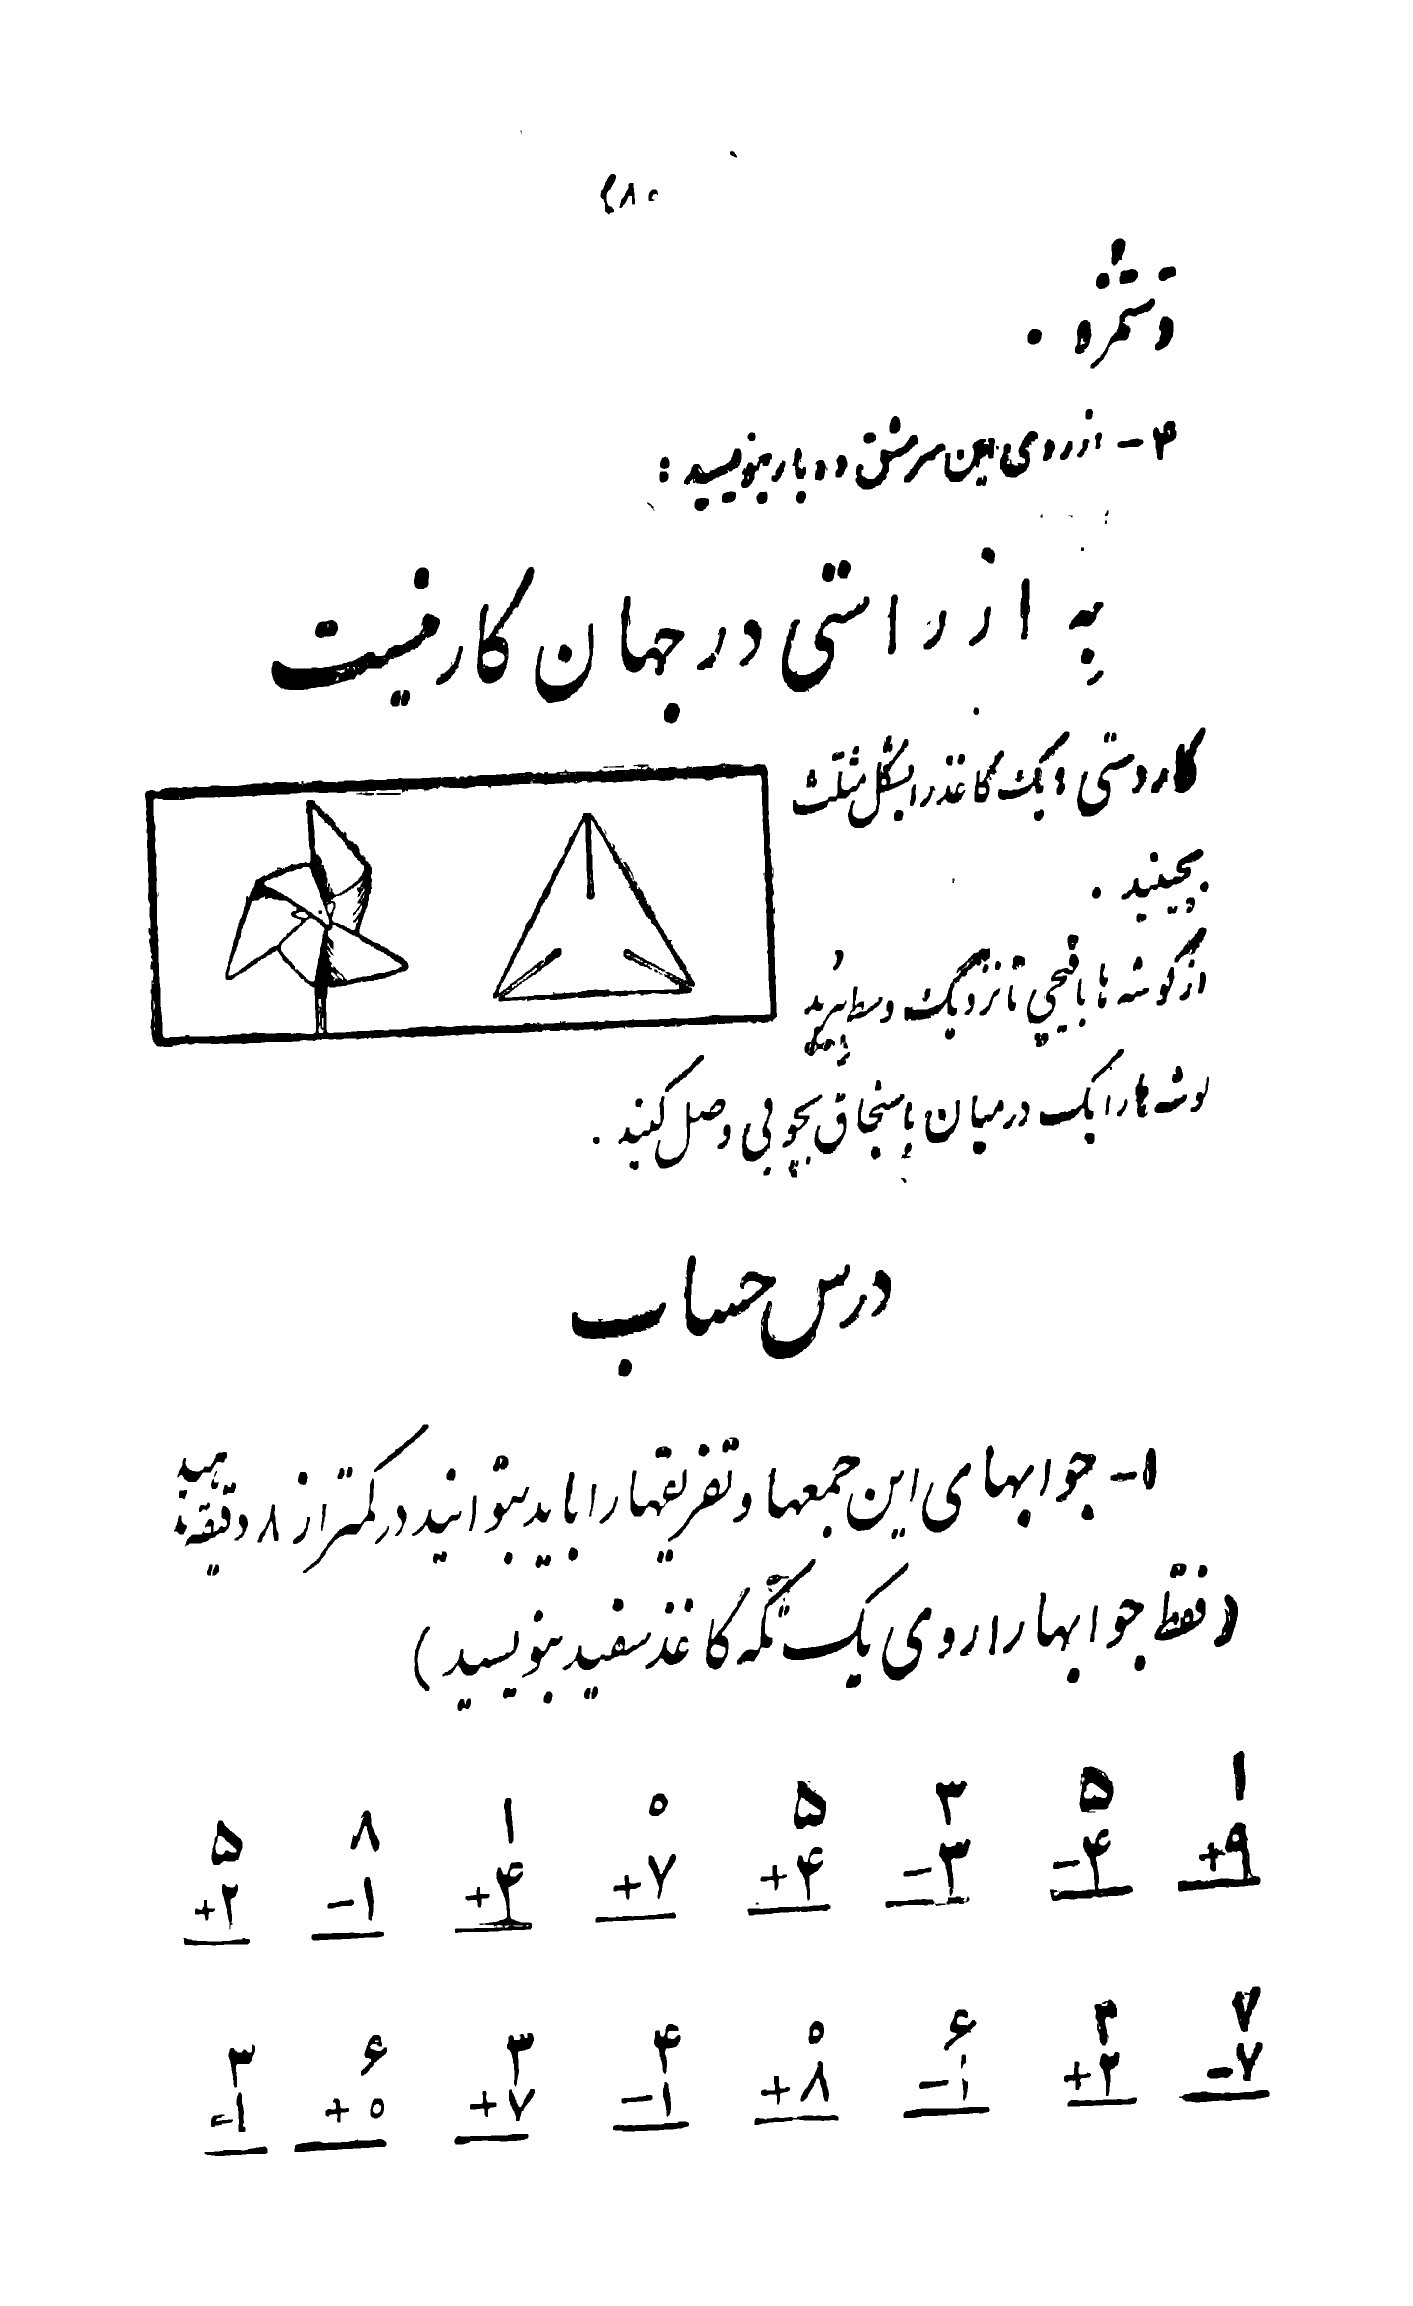 ۴۸۰
و ثمره .
۴- از روی این سرمشق دو بار بنویسید :
به از راستی در جهان کار نیست
کاردستی : یک کاغذ را بشکل مثلث
بچینید .
از گوشه ها با قیچی تا نزدیک وسط ببرید
گوشه ها را یک درمیان با سنجاق بچوبی وصل کنید .
درس حساب
۱- جوابهای این جمعها و تفریقها را باید بتوانید در کمتر از ۸ دقیقه بدهید
(فقط جوابها را روی یک تکه کاغذ سفید بنویسید)
۱ ۵ ۳ ۵ ۰ ۱ ۸ ۵
+۹ -۴ -۳ +۴ +۷ +۴ -۱ +۲
۷ ۲ ۶ ۰ ۴ ۳ ۶ ۳
-۷ +۲ -۱ +۸ -۱ +۷ +۰ -۱